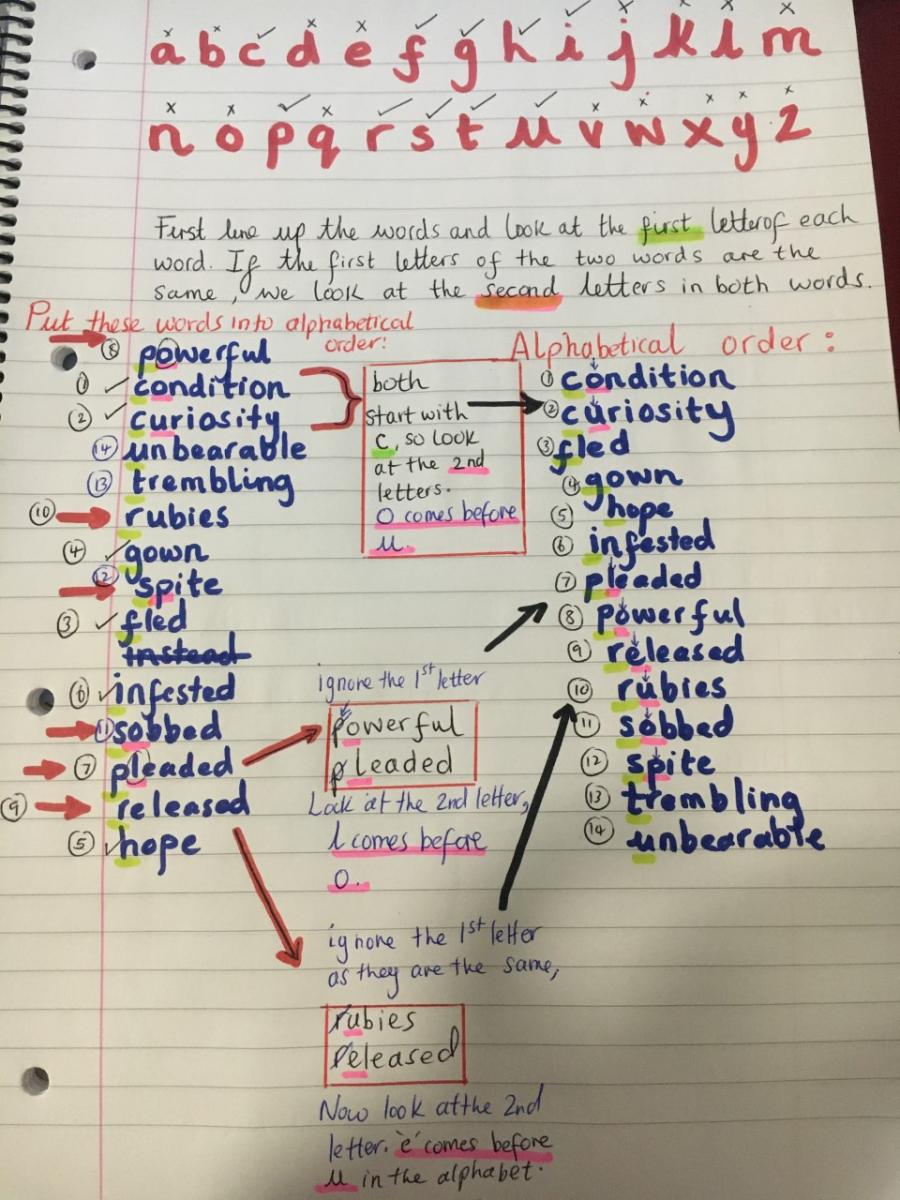 a b c d e f g h i j k l m
n o p q r s t u v w x y z
First line up the words and look at the first letter of each
word. If the first letters of the two words are the
same, we look at the second letters in both words.
Put these words into alphabetical
order:
⑧ powerful
① condition
② curiosity
⑭ unbearable
⑬ trembling
⑩ rubies
④ gown
⑫ spite
③ fled
instead
⑥ infested
⑪ sobbed
⑦ pleaded
⑨ released
⑤ hope
both
start with
c, so look
at the 2nd
letters.
O comes before
u.
Alphabetical order:
① condition
② curiosity
③ fled
④ gown
⑤ hope
⑥ infested
⑦ pleaded
⑧ powerful
⑨ released
⑩ rubies
⑪ sobbed
⑫ spite
⑬ trembling
⑭ unbearable
ignore the 1st letter
powerful
pleaded
Look at the 2nd letter,
l comes before
o.
ignore the 1st letter
as they are the same,
rubies
released
Now look at the 2nd
letter. 'e' comes before
u in the alphabet.